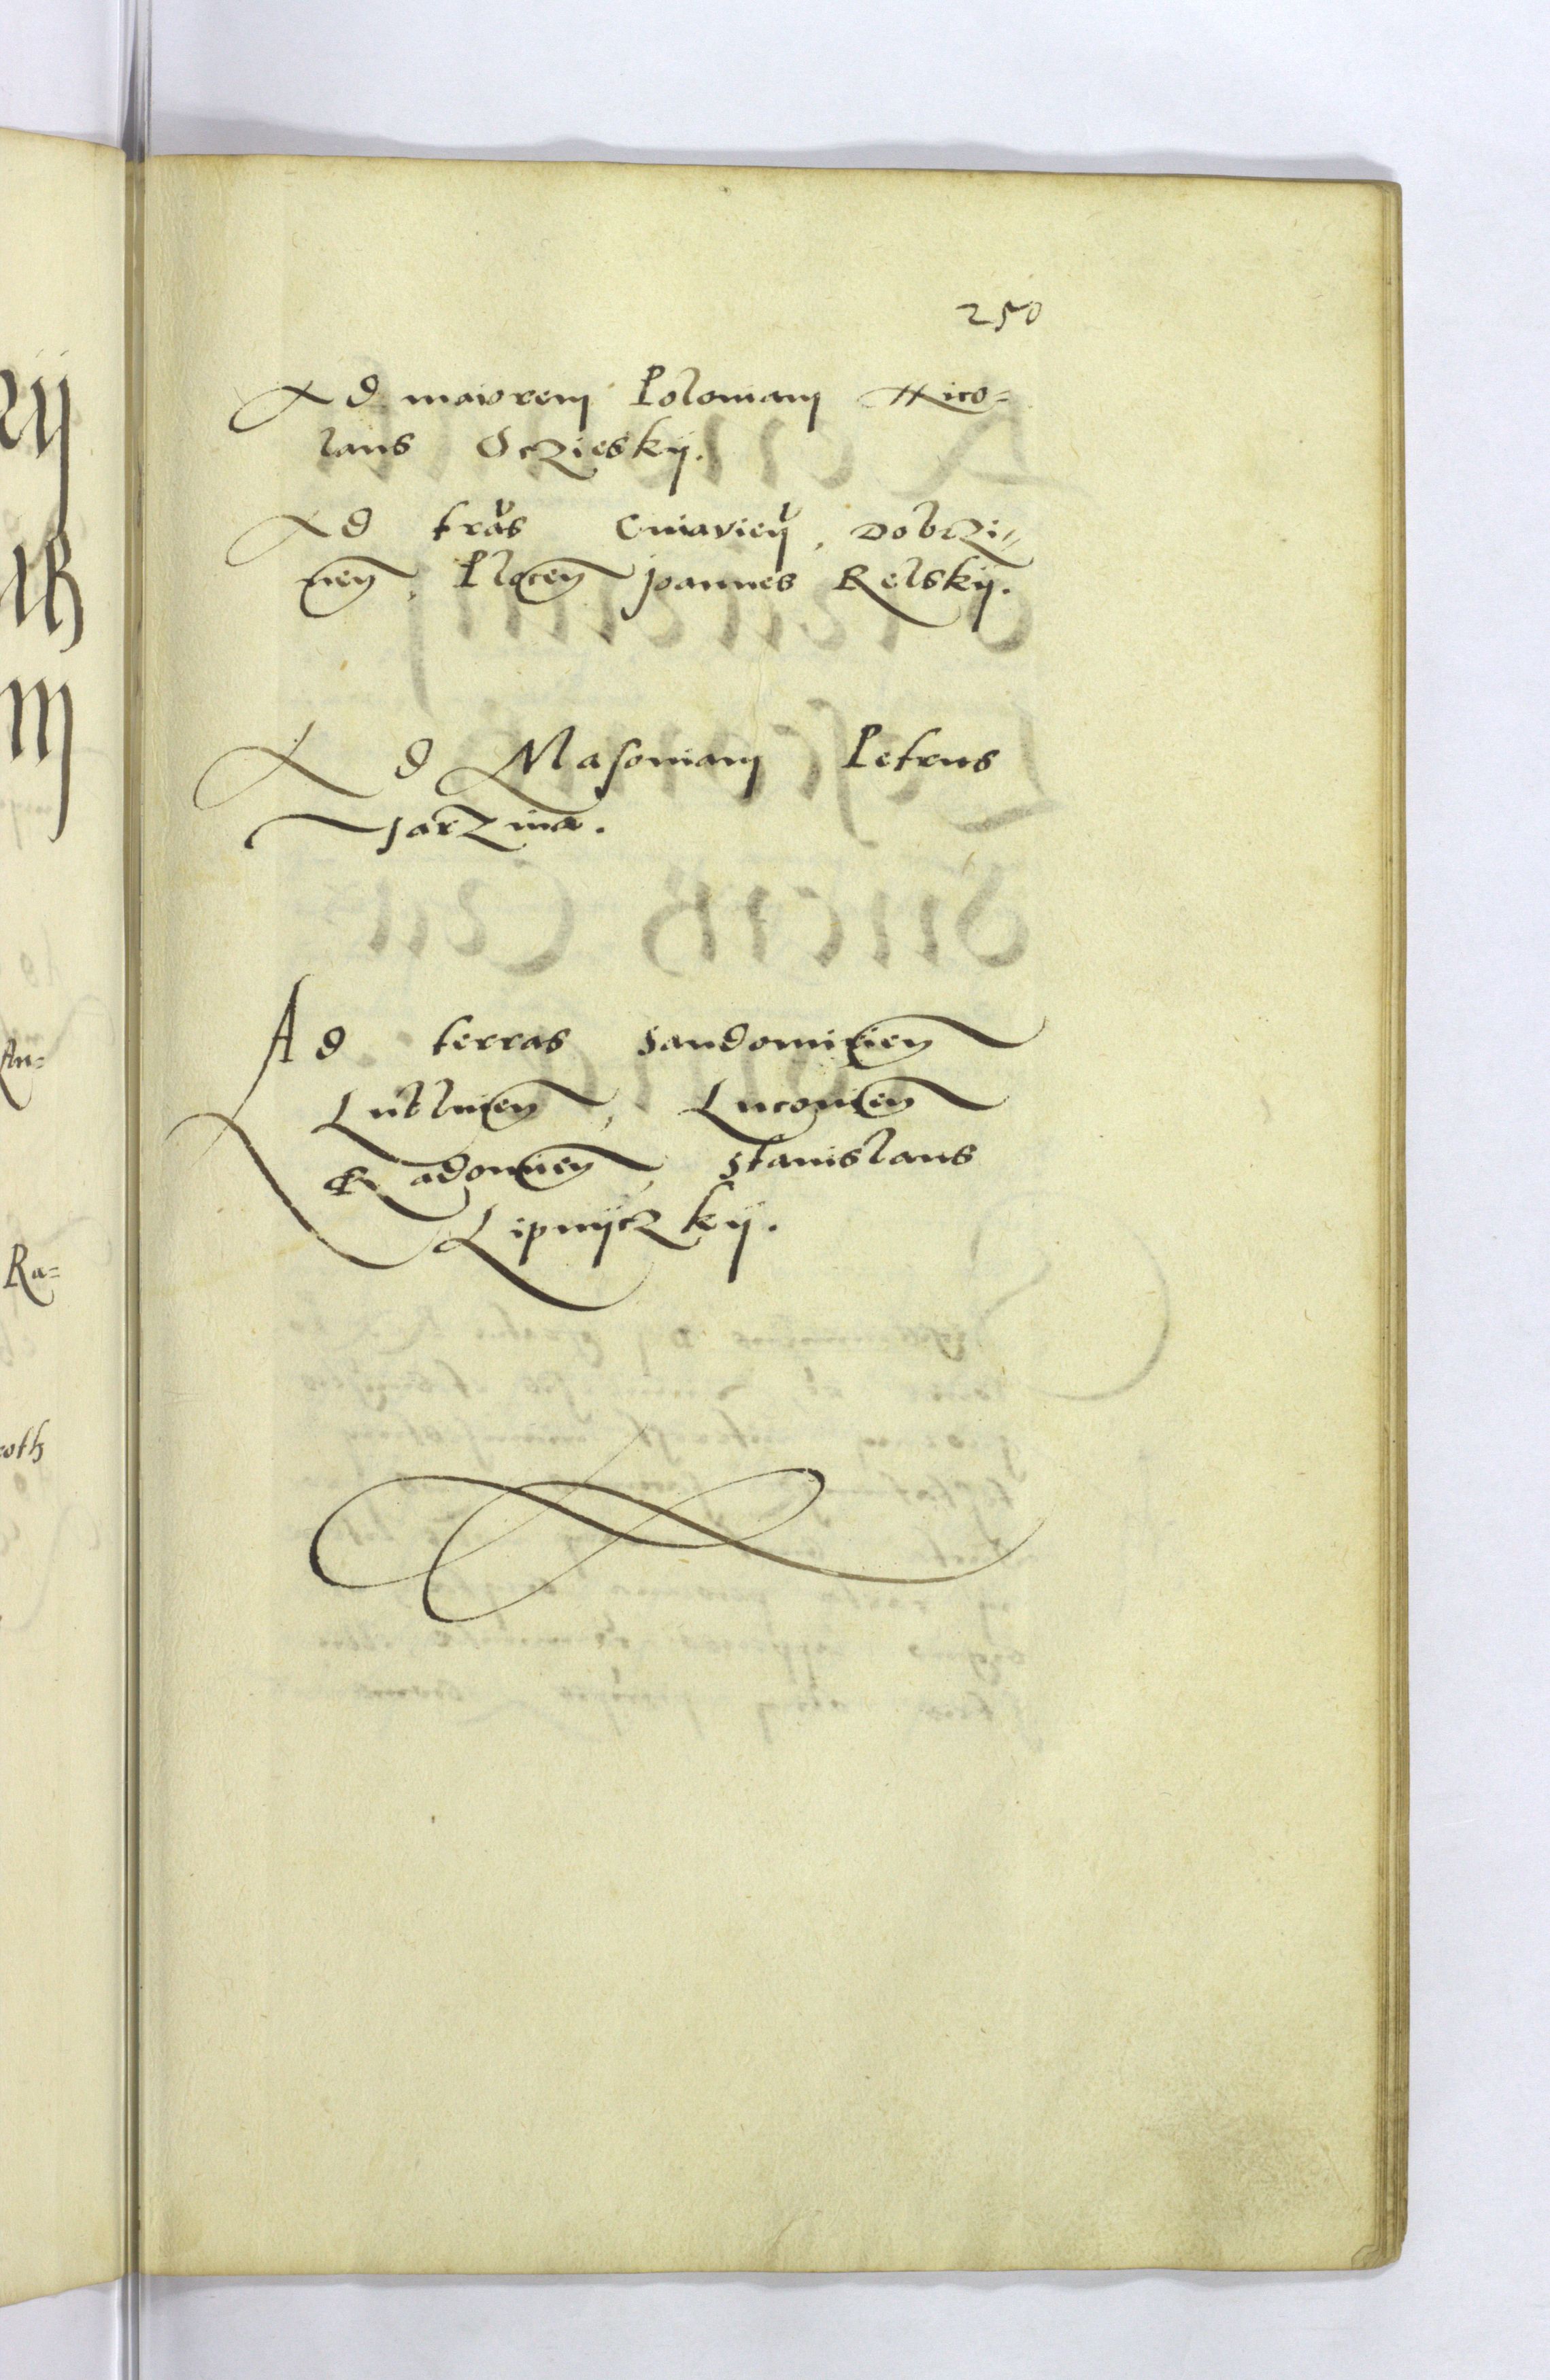 250
Ad maiorem Poloniam Nico=
laus Oczieskÿ.
Ad tras Cuiavien, Dobrzi=
nen, Plocen Joannes Relskÿ.
Ad Masoniam Petrus
Sarzina.
Ad terras Sandomirien
Lublinen, Lucovien
Radomien, Stanislaus
Lipnÿczkÿ.
Ra=